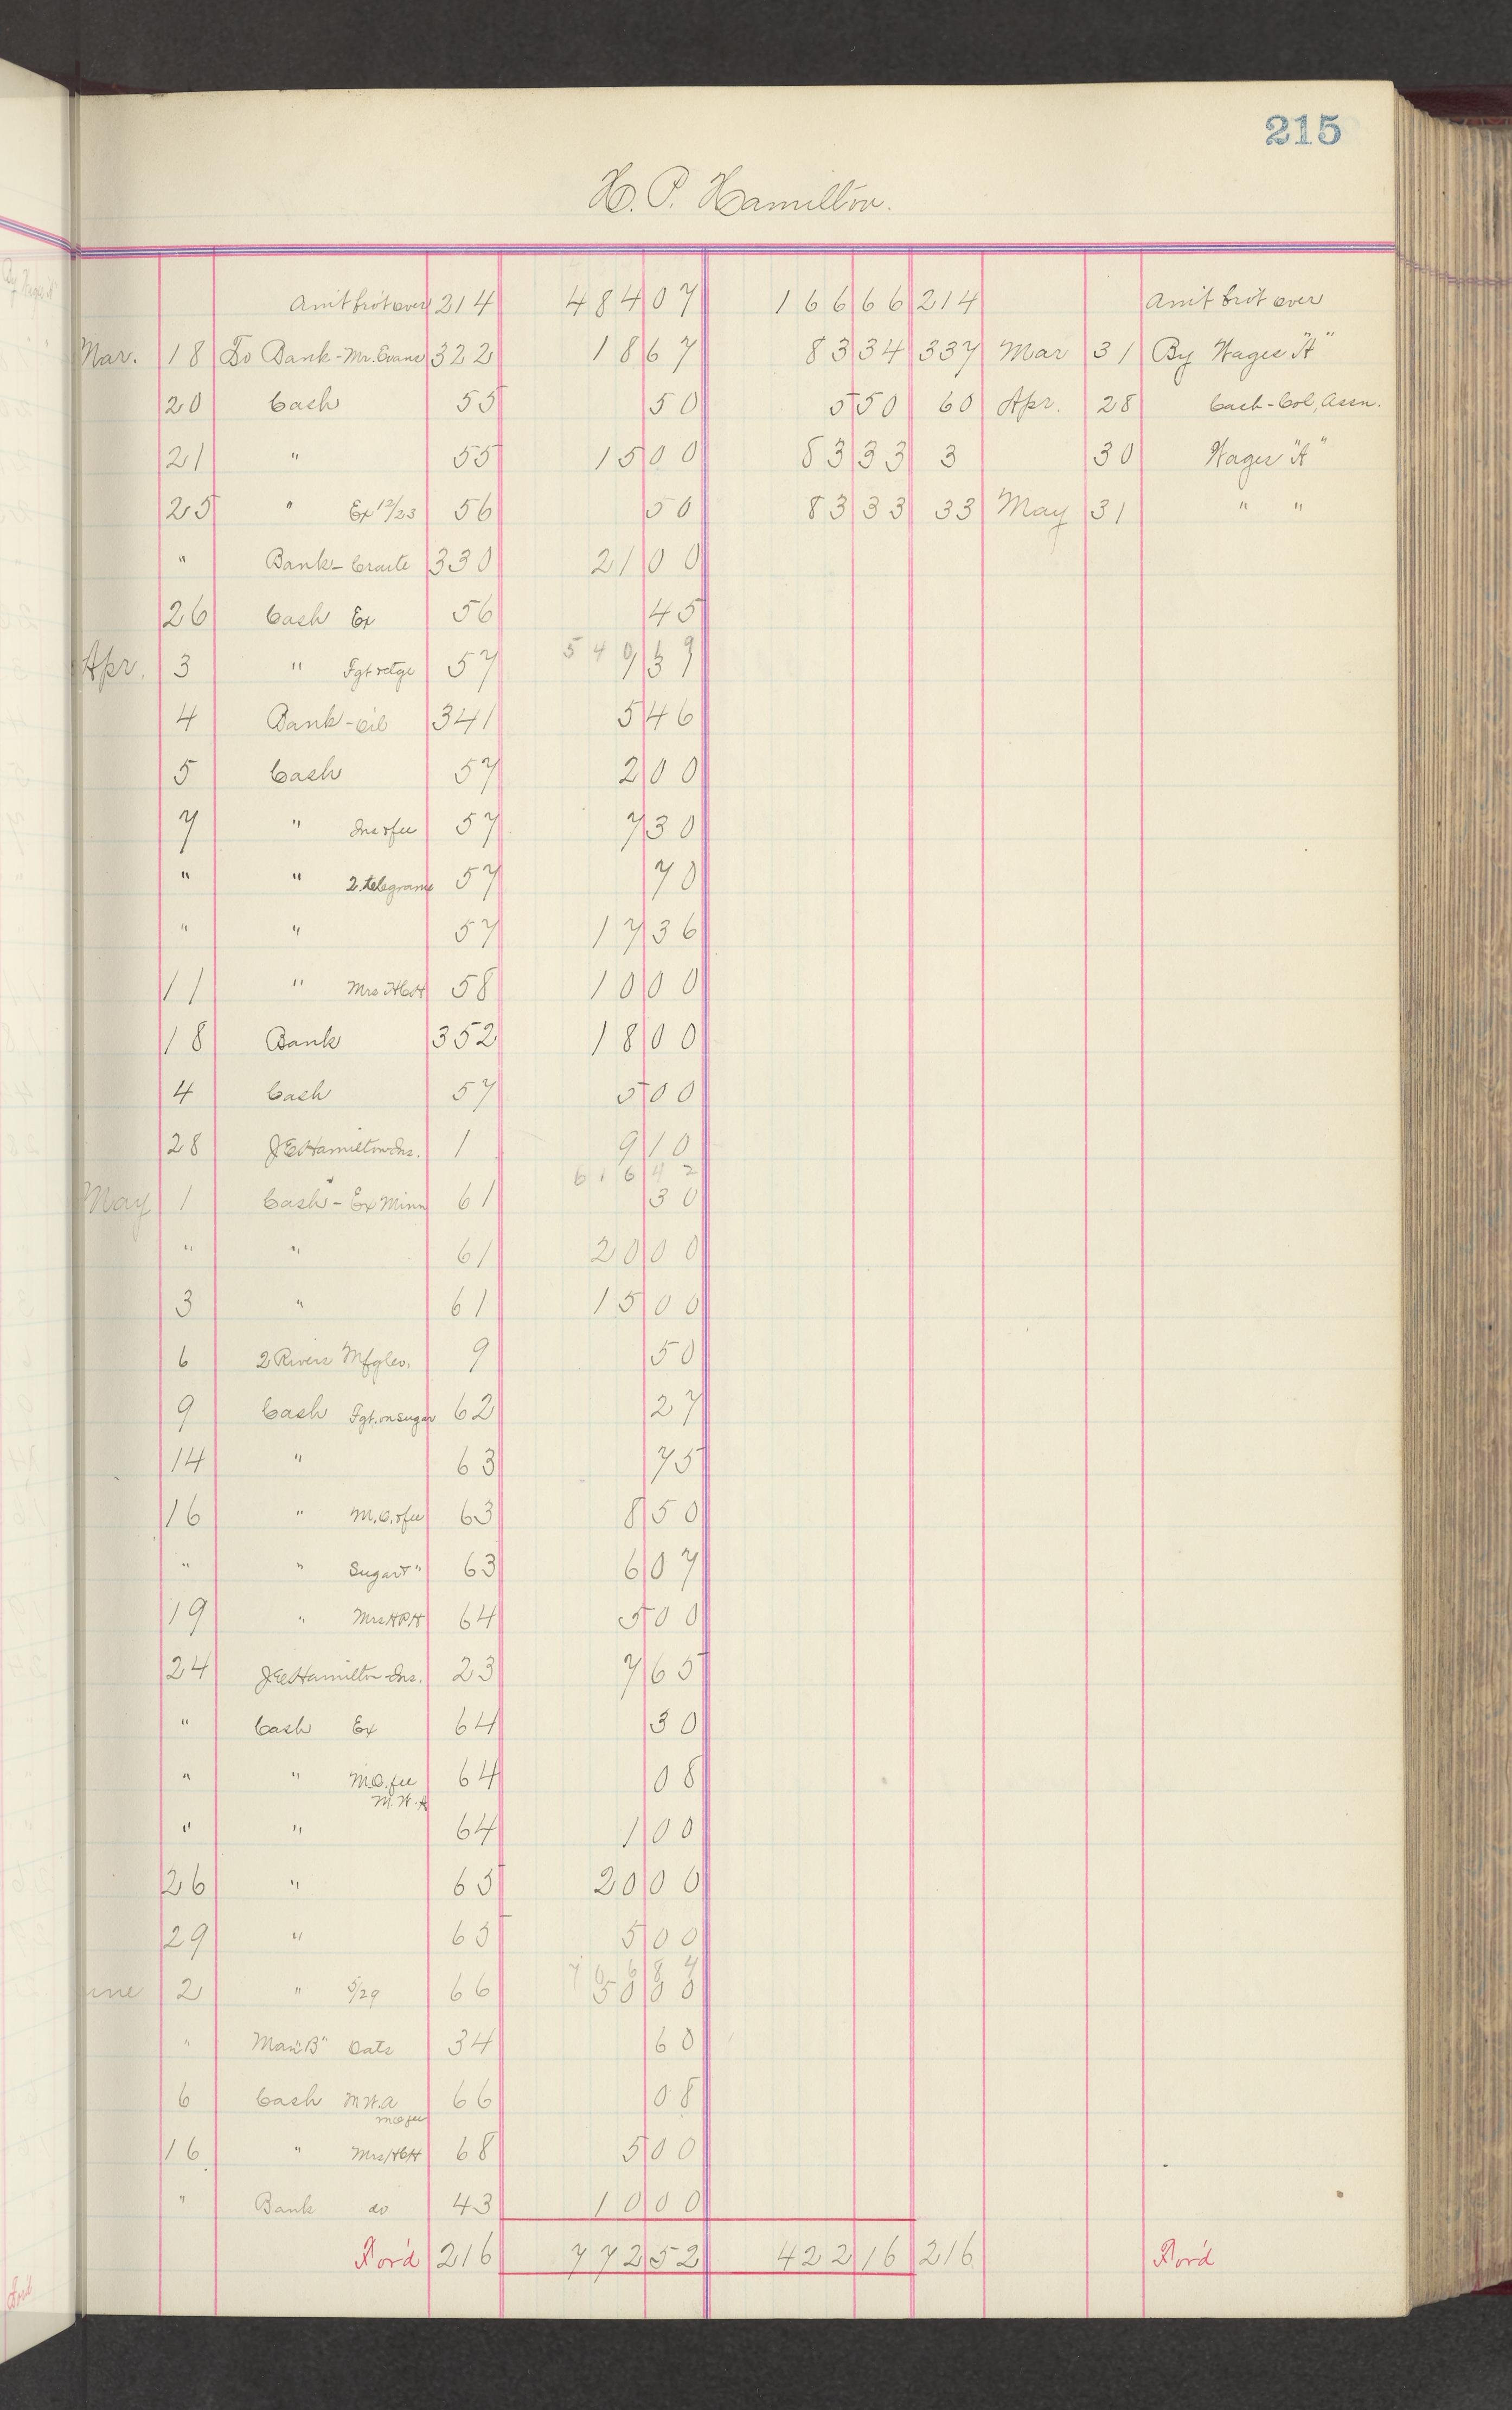 215
H. P. Hamilton.
Am't bro't over 214 484 07 166 66 214 Am't bro't over
Mar. 18 To Bank - Mr. Evans 322 18 67 83 34 337 Mar 31 By Wages "A"
20 Cash 55 50 5 50 60 Apr. 28 Cash - Col, Assn.
21 " 55 15 00 83 33 3 30 Wages "A"
25 " Ex 12/23 56 50 83 33 33 May 31 " "
" Bank - 330 21 00
26 Cash Ex 56 45
540 19
Apr. 3 " Fgt 57
4 Bank - Oil 341 5 46
5 Cash 57 2 00
7 " Ins & fee 57 7 30
" " 2 telegrams 57 70
" " 57 17 36
11 " Mrs 58 10 00
18 Bank 352 18 00
4 Cash 57 5 00
28 J E Hamilton Ins. 1 9 10
616 42
May 1 Cash - Ex Minn 61 30
" " 61 20 00
3 " 61 15 00
6 2 Rivers Mfg Co. 9 50
9 Cash Fgt. on sugar 62 27
14 " 63 75
16 " M.O. & fee 63 8 50
" " Sugar & " 63 6 07
19 " Mrs HPH 64 5 00
24 J E Hamilton - Ins. 23 7 65
" Cash Ex 64 30
" " M.O. fee 64 08
M.W.A
" " 64 1 00
26 " 65 20 00
29 " 65 5 00
706 84
une 2 " 5/29 66 50 00
" Man "B" Oats 34 60
6 Cash M W. A 66 08
m o fee
16 " Mrs 68 5 00
" Bank do 43 10 00
For'd 216 772 52 422 16 216 For'd